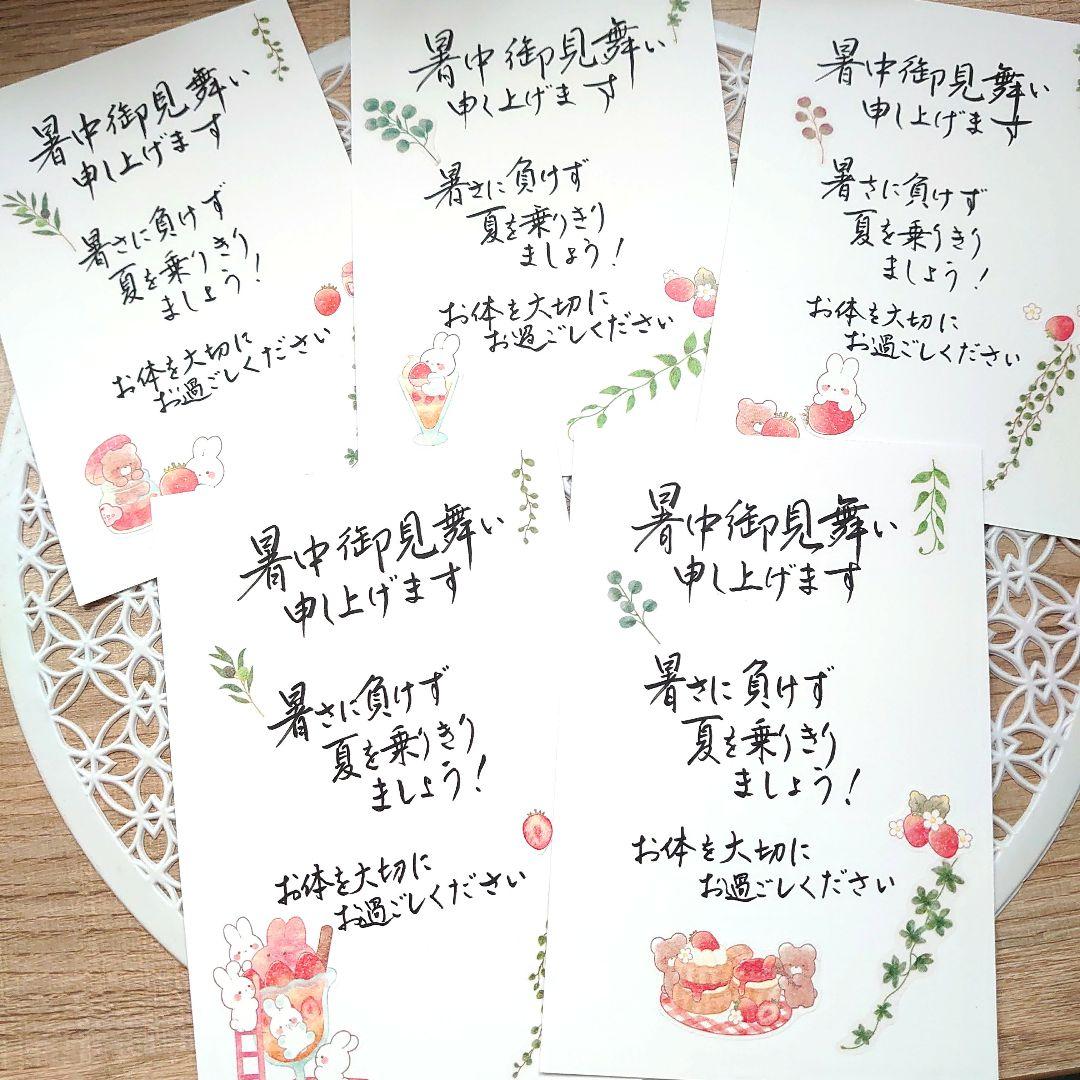 暑中御見舞い
申し上げます
暑さに負けず
夏を乗りきり
ましょう!
お体を大切に
お過ごしください
暑中御見舞い
申し上げます
暑さに負けず
夏を乗りきり
ましょう!
お体を大切に
お過ごしください
暑中御見舞い
申し上げます
暑さに負けず
夏を乗りきり
ましょう!
お体を大切に
お過ごしください
暑中御見舞い
申し上げます
暑さに負けず
夏を乗りきり
ましょう!
お体を大切に
お過ごしください
暑中御見舞い
申し上げます
暑さに負けず
夏を乗りきり
ましょう!
お体を大切に
お過ごしください